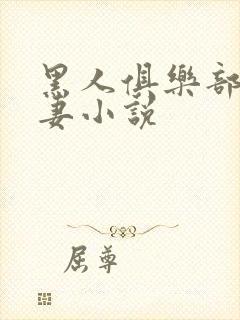 黑人俱樂部
妻小說
屈尊